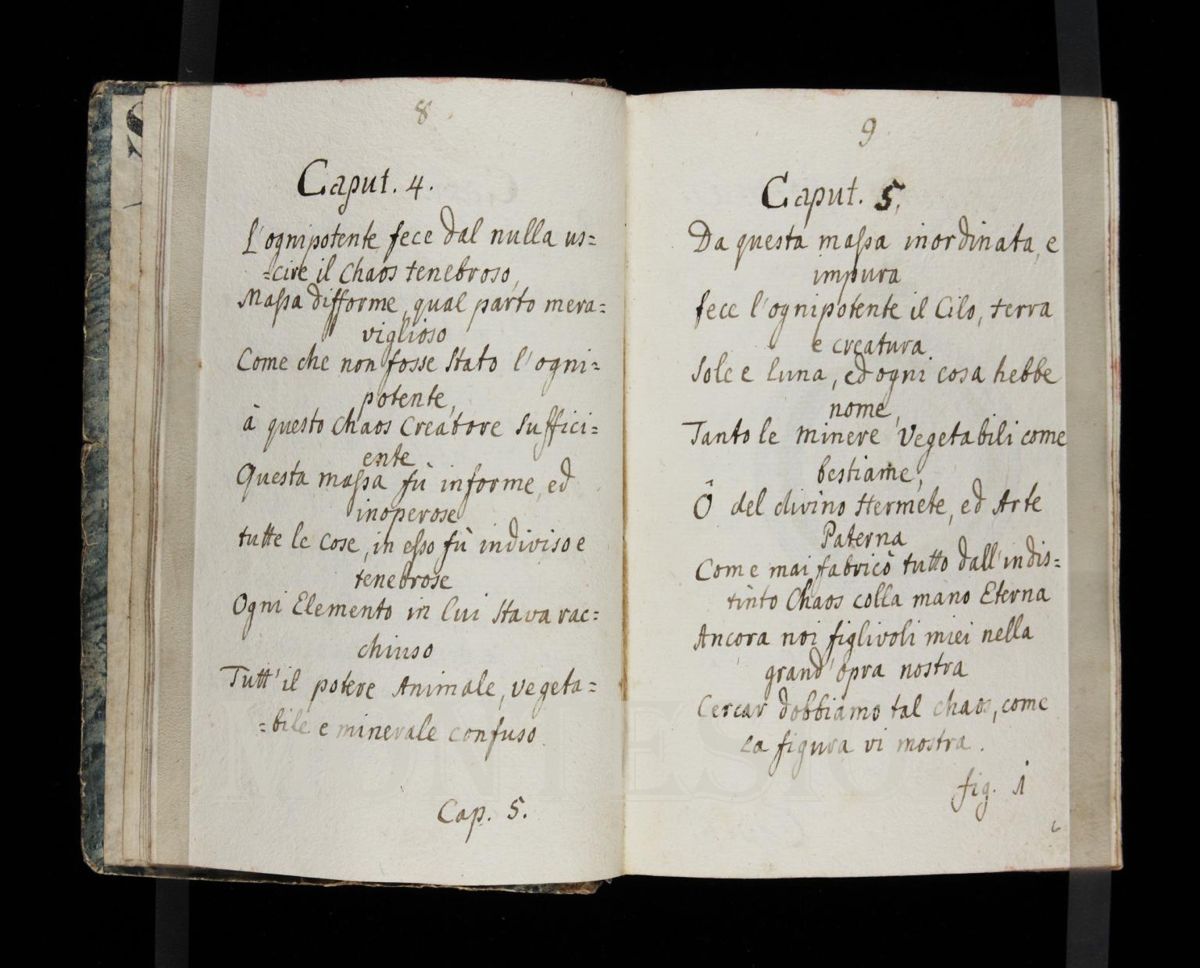 8
Caput. 4.
L'ognipotente fece dal nulla us=
=cire il Chaos tenebroso,
Massa difforme, qual parto mera=
viglioso
Come che non fosse stato l'ogni=
potente,
à questo Chaos Creatore suffici=
ente
Questa massa fù informe, ed
inoperose
tutte le cose, in esso fù indiviso e
tenebrose
Ogni Elemento in lui stava rac=
chiuso
Tutt' il potere Animale, vegeta=
=bile e minerale confuso
Cap. 5.
9
Caput. 5.
Da questa massa inordinata, e
impura
fece l'ognipotente il Cilo, terra
e creatura
Sole e luna, ed ogni cosa hebbe
nome,
Tanto le minere Vegetabili come
bestiame,
Ô del divino Hermete, ed Arte
Paterna
Come mai fabricò tutto dall'indis=
tinto Chaos colla mano Eterna
Ancora noi figlivoli miei nella
grand' opra nostra
Cercar dobbiamo tal chaos, come
La figura vi mostra.
fig. 1
MONTESIO